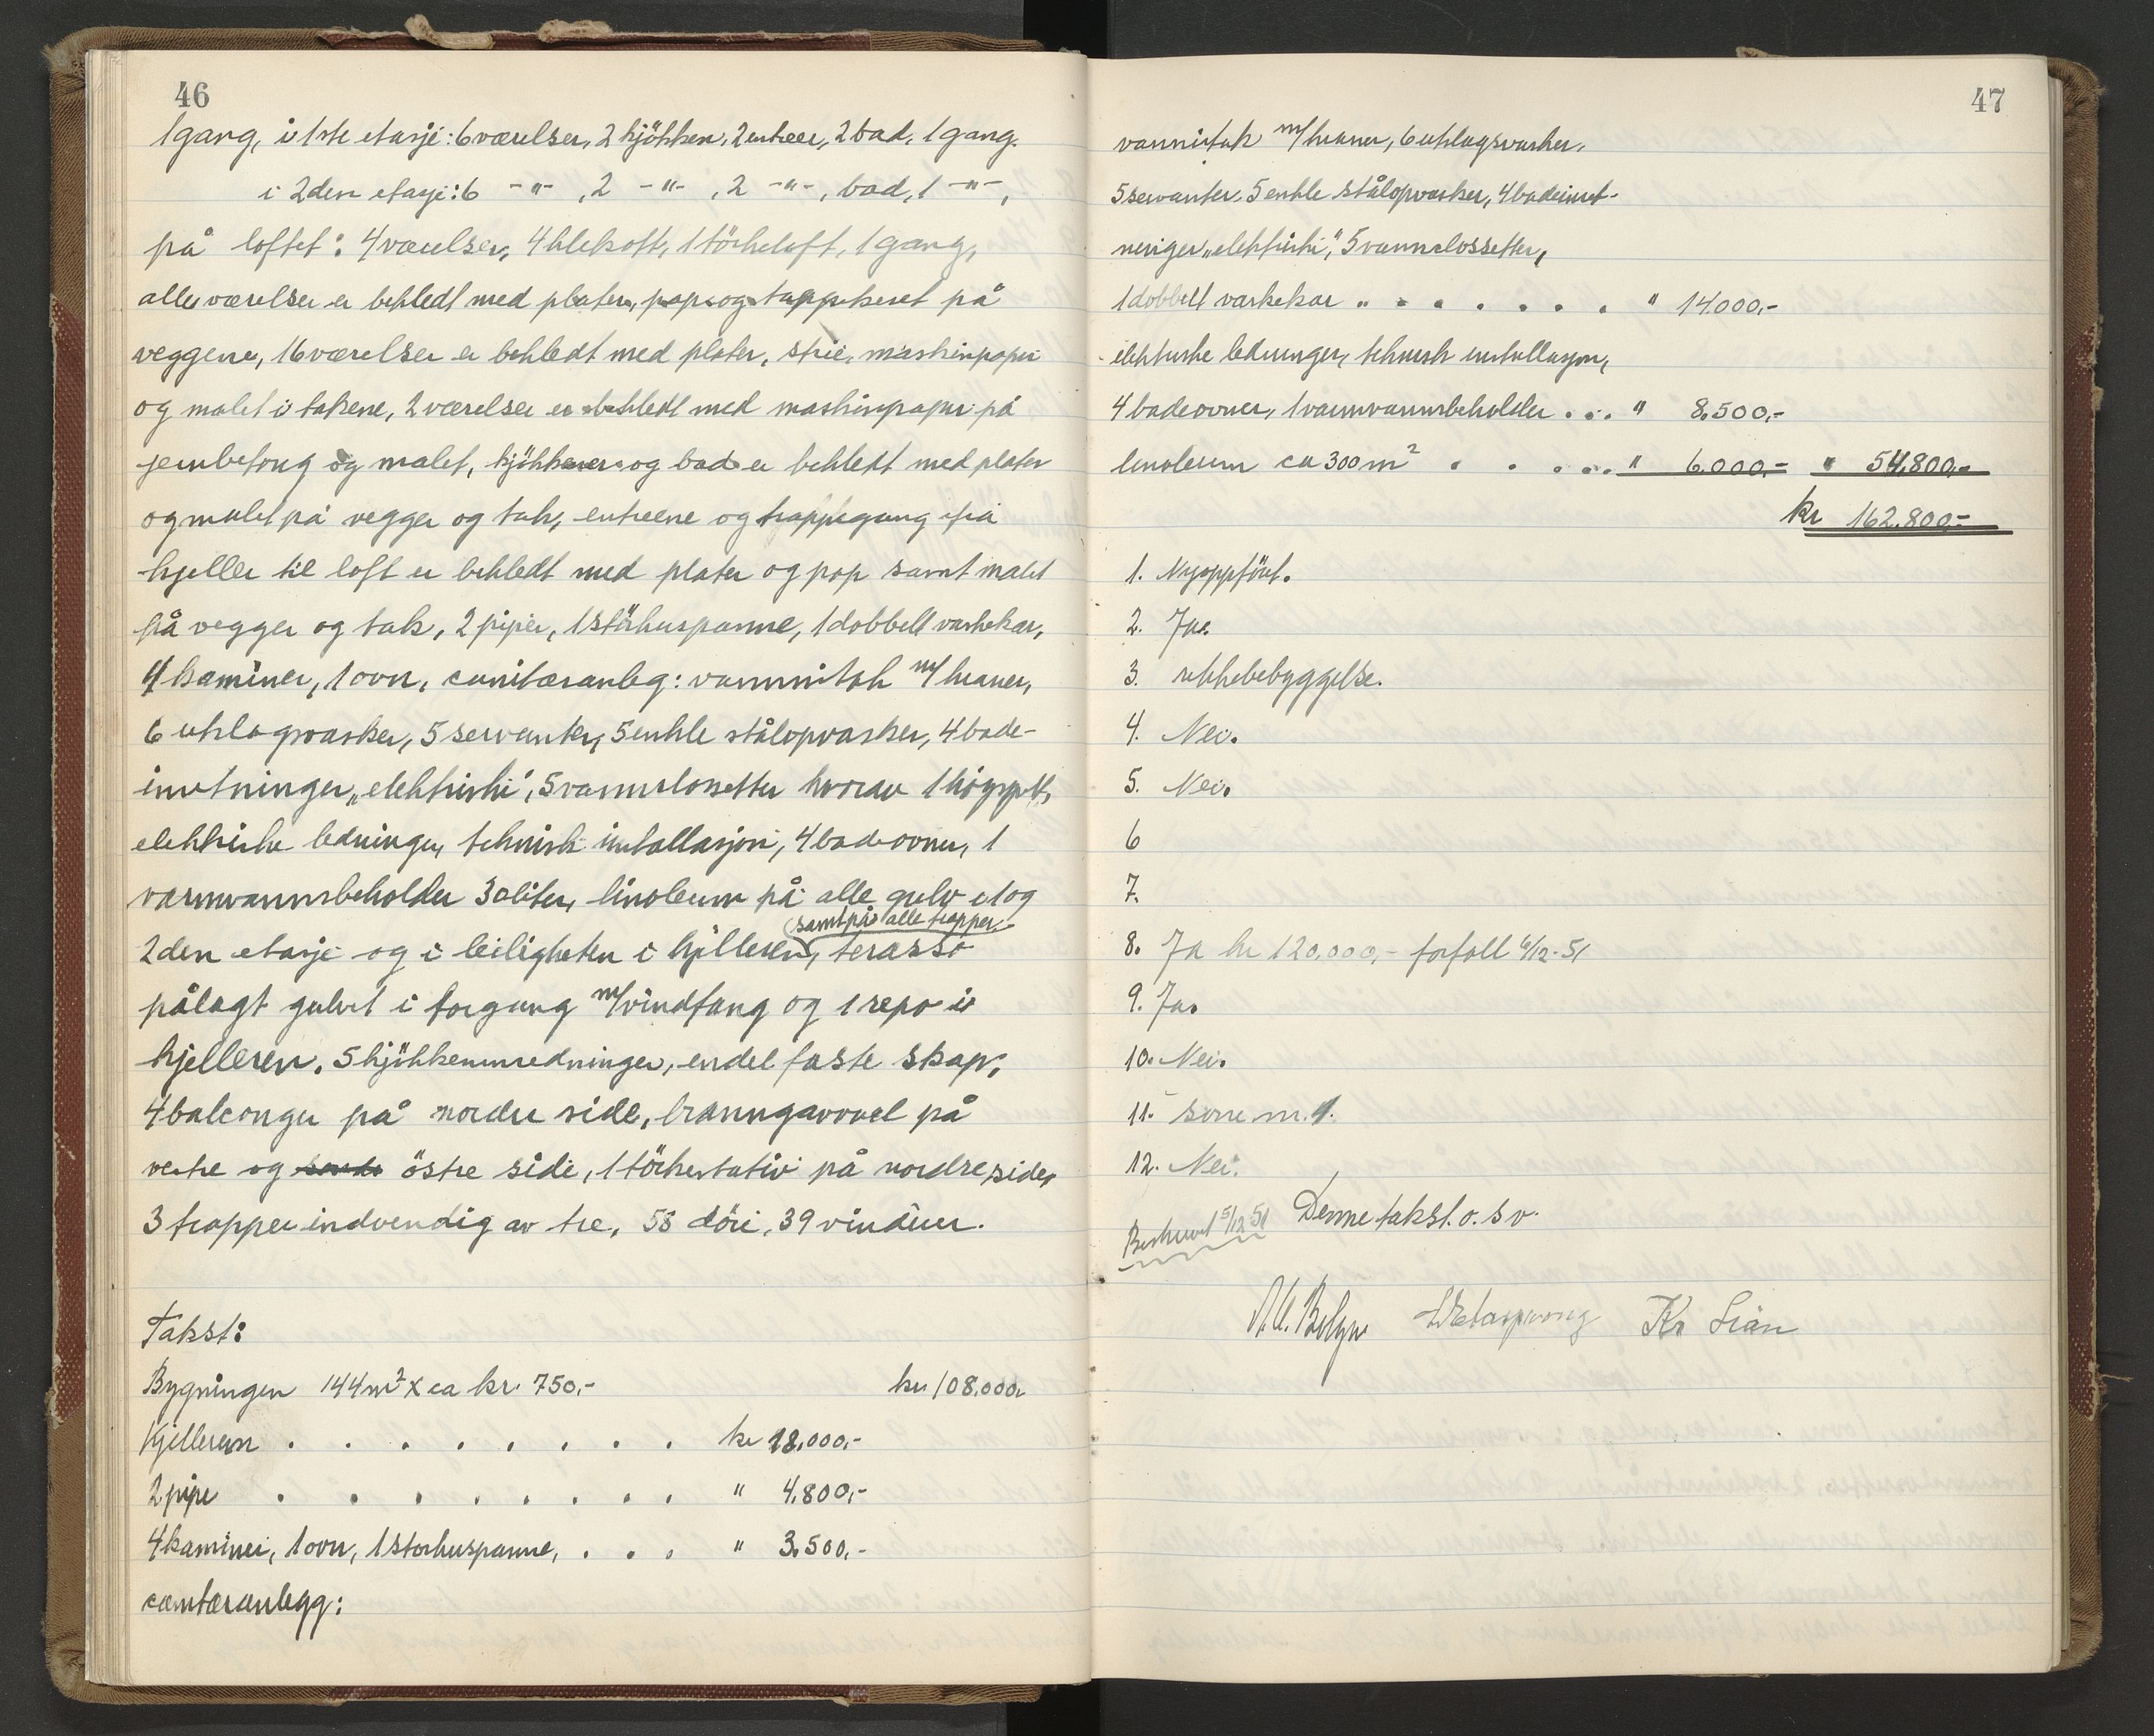 46
1 gang, i 1ste etasje: 6 værelser, 2 kjökken, 2 entreer, 2 bad, 1 gang.
i 2den etasje: 6 -"-, 2 -"-, 2 -"-, bad, 1 -"-,
på loftet: 4 værelser, 4 klekott, 1 törkeloft, 1 gang,
alle værelser er bekledt med plater, pap og tappiseret på
veggene, 16 værelser er bekledt med plater, strie, maskinpapir
og malet i takene, 2 værelser er bekledt med maskinpapir på
jernbetong og malet, kjökkener og bad er bekledt med plater
og malet på vegger og tak, entreene og trappegang frå
kjeller til loft er bekledt med plater og pap samt malet
på vegger og tak, 2 piper, 1 störhuspanne, 1 dobbelt vaskekar,
4 kaminer, 1 ovn, sanitæranleg: vanninntak m/ kraner,
6 utslagsvasker, 5 servanter, 5 enkle stålopvasker, 4 bade-
inretninger „elektriske", 5 vannclossetter hvorav 1 höyspylt,
elektriske ledninger, teknisk installasjon, 4 badeovner, 1
varmvannsbeholder 30 liter, linoleum på alle gulv 1 og
samt på alle trapper
2den etasje og i leiligheten i kjelleren, terasso
pålagt gulvet i forgang m/ vindfang og 1 repo i
kjelleren. 5 kjökkeninredninger, endel faste skap,
4 balconger på nordre side, branngavvel på
vestre og östre side, 1 törkestativ på nordre side,
3 trapper indvendig av tre, 58 döre, 39 vinduer.
Takst:
Bygningen 144 m² x ca kr. 750,- kr. 108.000,-
Kjelleren . . . . . . . . kr 18.000,-
2 pipe . . . . . . . . " 4.800,-
4 kaminer, 1 ovn, 1 storhuspanne, . . . " 3.500,-
sanitæranlegg:
47
vanninntak m/ kraner, 6 utslagsvasker,
5 servanter, 5 enkle stålopvasker, 4 badeinret-
ninger „elektriske", 5 vannclossetter,
1 dobbelt vaskekar . . . . . . . " 14.000,-
elektriske ledninger, teknisk installasjon,
4 badeovner, 1 varmvannsbeholder . . . " 8.500,-
linoleum ca 300 m² . . . . . " 6.000,- " 54.800,-
kr 162.800,-
1. Nyoppfört.
2. Ja.
3. rekkebebyggelse.
4. Nei.
5. Nei.
6
7.
8. Ja kr 120.000,- forfall 6/12-51
9. Ja.
10. Nei.
11. sone nr. 1.
12. Nei.
Beskrevet 5/12 51 Denne takst. o. s v.
Kr Lian